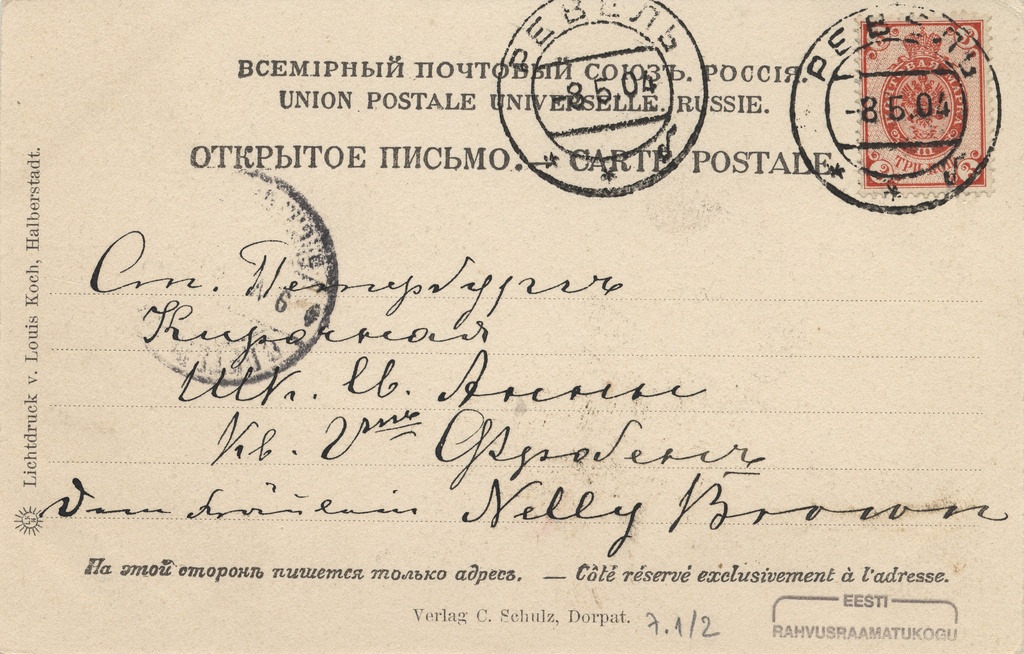 РЕВЕЛЬ
-8.5.04
РЕВЕЛЬ
-8.5.04
ВСЕМІРНЫЙ ПОЧТОВЫЙ СОЮЗЪ. РОССІЯ.
UNION POSTALE UNIVERSELLE. RUSSIE.
ОТКРЫТОЕ ПИСЬМО. — CARTE POSTALE.
Ст. Петербургъ
Кирочная
Шк. Св. Анны
Кв. Фробенъ
Dem Fräulein Nelly Brown
На этой сторонѣ пишется только адресъ. — Côté réservé exclusivement à l'adresse.
Verlag C. Schulz, Dorpat.
7.1/2
EESTI
RAHVUSRAAMATUKOGU
Lichtdruck v. Louis Koch, Halberstadt.